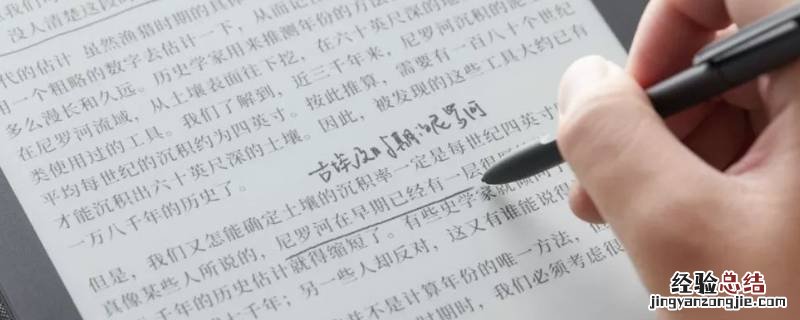 没人清楚这段时
代的估计 虽然渔猎时期的具体
用一个粗略的数字去估计一下，从而记
多么漫长和久远。历史学家用来推测年份的方法
在尼罗河流域，从土壤表面往下挖，在六十英尺深的地
类使用过的工具。我们了解到，近三千年来，尼罗河沉积的泥
平均每世纪的沉积约为四英寸。按此推算，需要有一百八十个世纪
才能沉积出六十英尺深的土壤。因此，被发现的这些工具大约已有
一万八千年的历史了。
古埃及时期的尼罗河
但是，我们又怎能确定土壤的沉积率一定是每世纪四英寸
真像某些人所说的，尼罗河在早期已经有一层很
千年的历史估计就得缩短了。有些史学家就倾向于
七千年；另一些人却反对，这又有谁能说得
并不是计算年份的唯一方法，但
时期时，我们必须考虑很
经验总结
jingyanzongjie.com